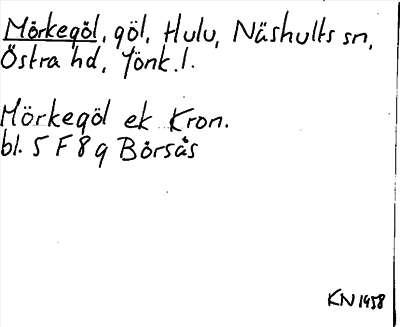 Mörkegöl, göl, Hulu, Näshults sn,
Östra hd, Jönk.l.
Mörkegöl ek Kron.
bl. 5 F 8 g Börsås
KN 1958